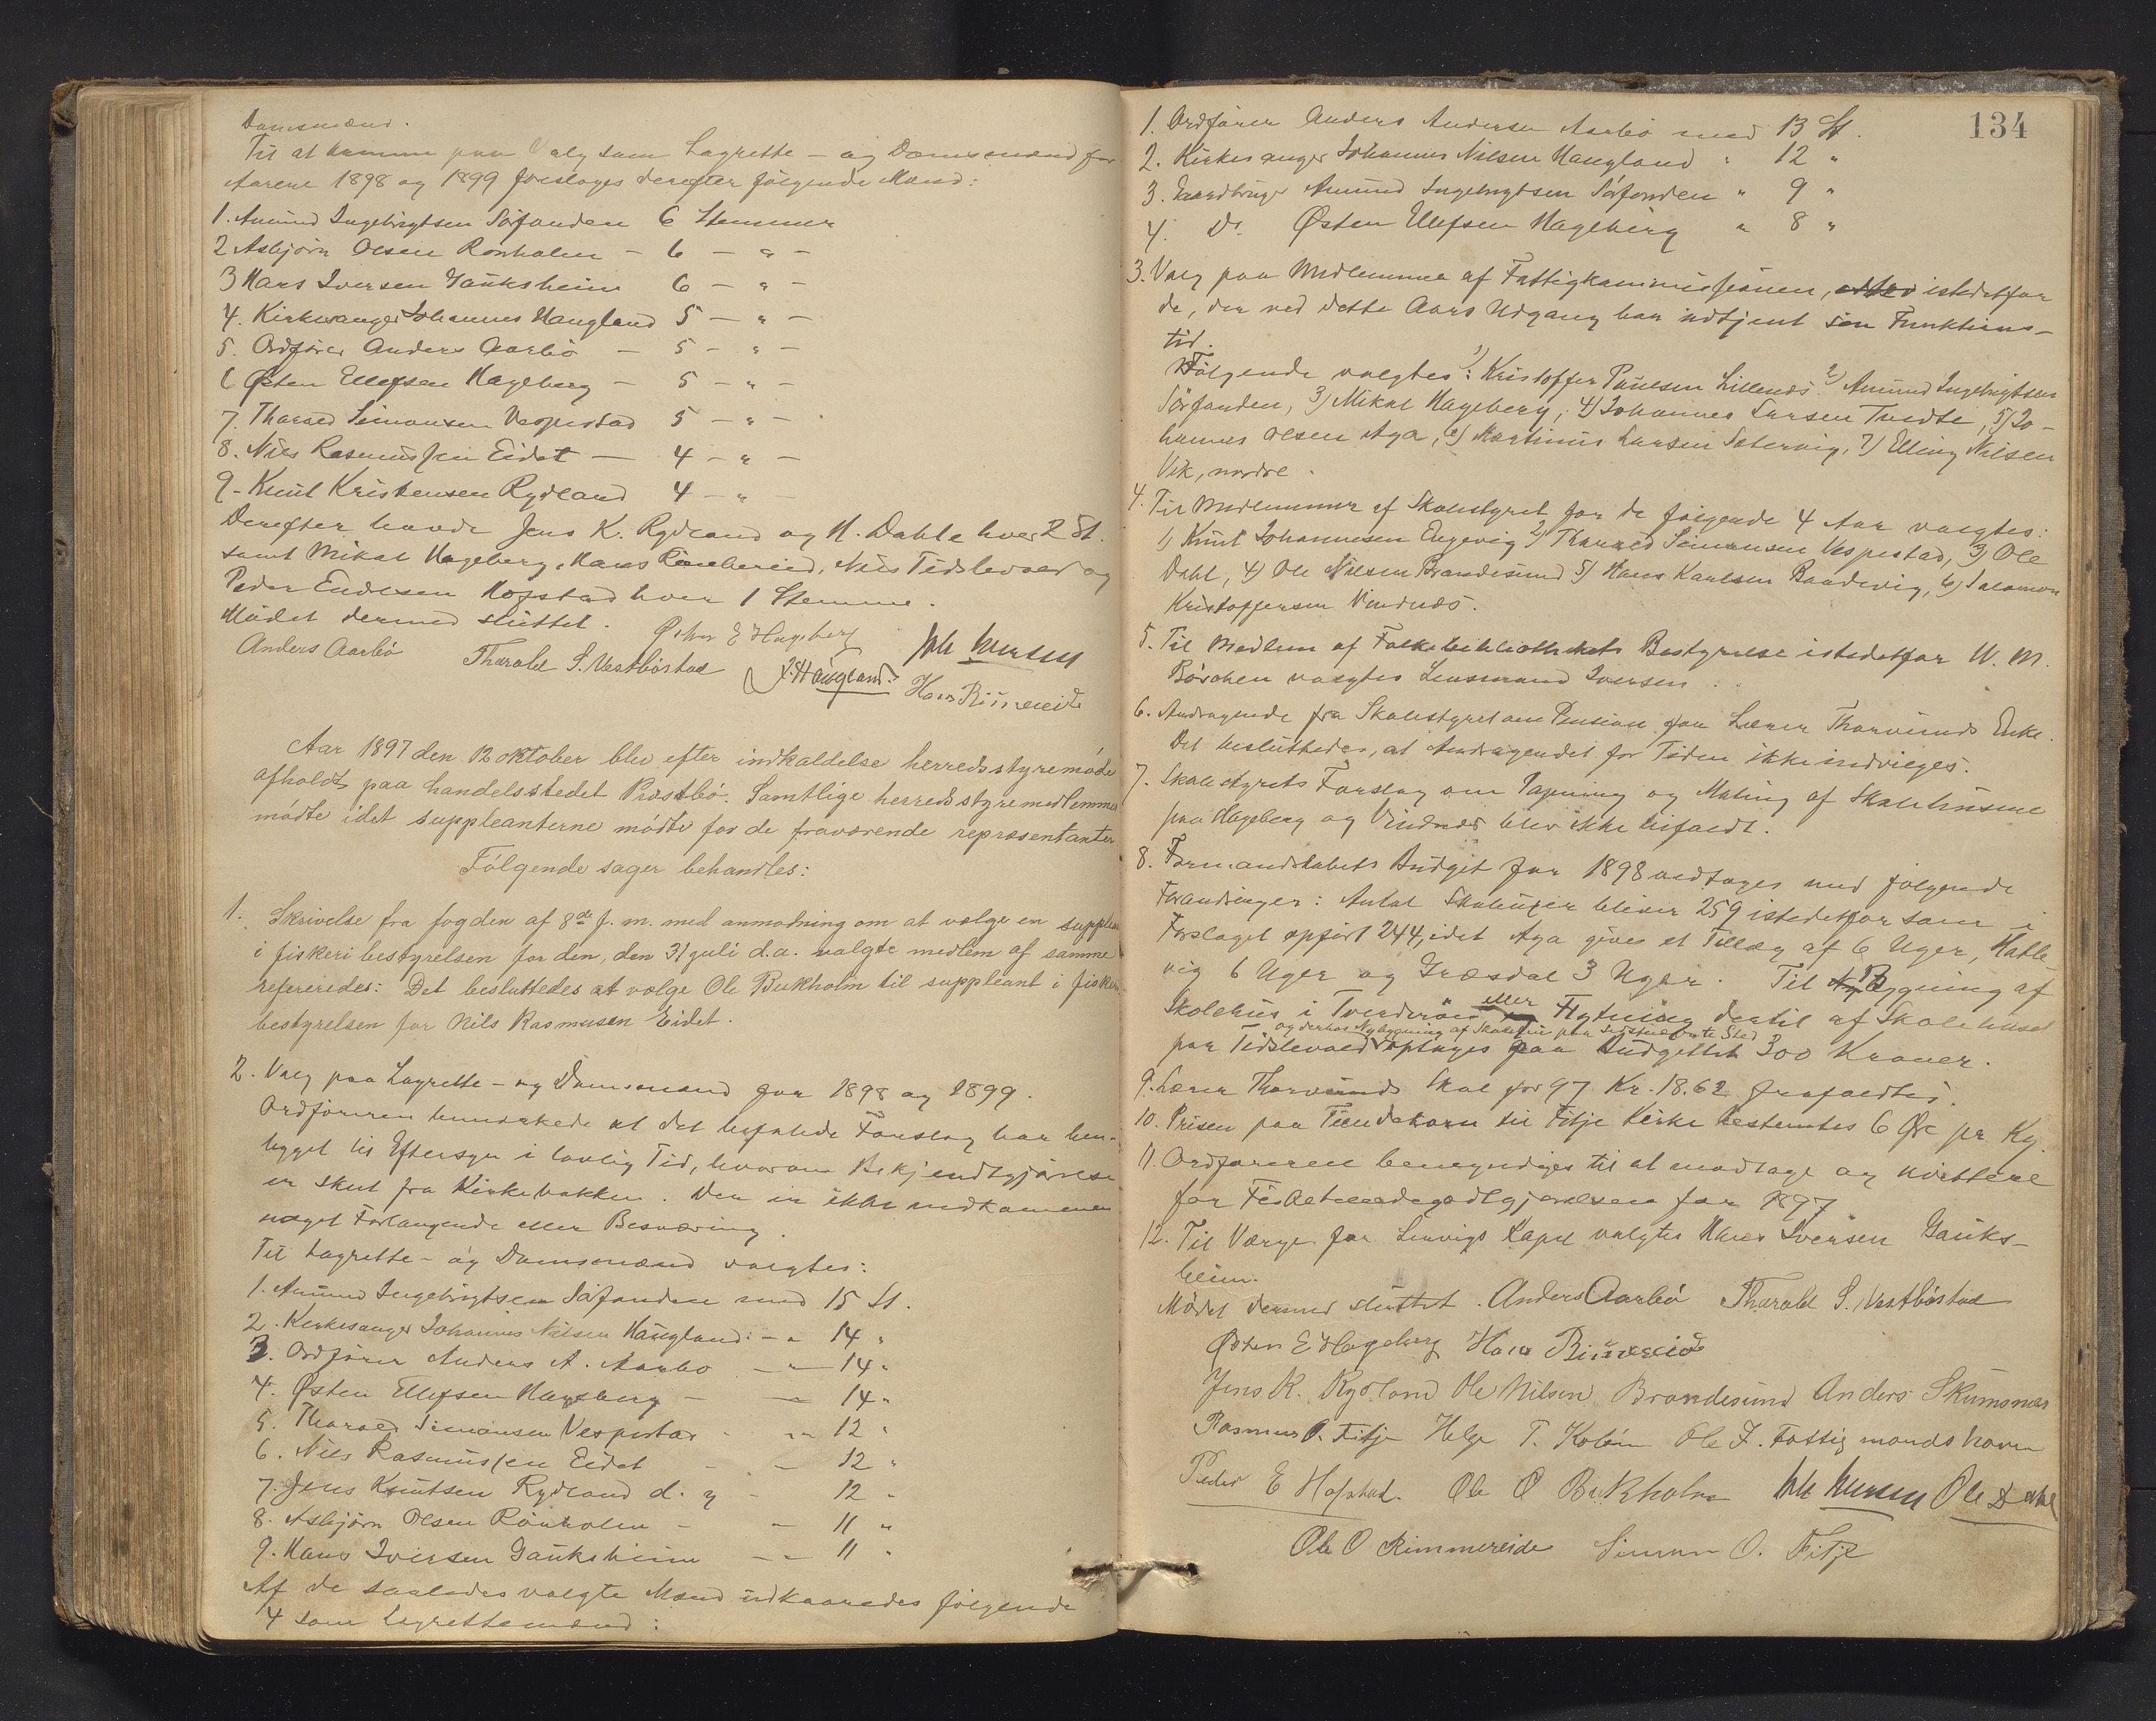 Domsmænd.
Til at komme paa Valg som Lagrette- og Domsmænd for
Aarene 1898 og 1899 foreslages derefter følgende Mænd:
1. Amund Ingebrigtsen Sörfonden 6 Stemmer
2 Asbjörn Olsen Rönholm - 6 - " -
3 Hans Iversen Gauksheim 6 - " -
4. Kirkesanger Johannes Haugland 5 - " -
5. Ordfører Anders Aarbö - 5 - " -
6 Østen Ellefsen Hageberg - 5 - " -
7. Tharald Simonsen Vespestad 5 - " -
8. Nils Rasmussen Eidet - 4 - " -
9. Knut Kristensen Rydland 4 - " -
Derefter havde Jens K. Rydland og N. Dahle hver 2 St.
samt Mikal Hageberg, Hans Rimbereid, Nils Tidslevold og
Peder Endresen Hofstad hver 1 Stemme.
Mødet dermed sluttet.
Østen E Hageberg
Anders Aarbö Tharald S. Vestböstad J. Haugland
Hans Rimereide
Aar 1897 den 12 oktober blev efter indkaldelse herredsstyremöde
afholdt paa handelsstedet Præstbö. Samtlige herredsstyremedlemmer
mødte idet suppleanterne mødte for de fraværende repræsentanter
Følgende sager behandles:
1. Skrivelse fra fogden af 8de f. m. med anmodning om at vælge en supplea
i fiskeri bestyrelsen for den, den 31 juli d.a. valgte medlem af samme
refereredes: Det besluttedes at vælge Ole Bukholm til suppleant i fiskeri
bestyrelsen for Nils Rasmusen Eidet.
2. Valg paa Lagrette- og Domsmænd for 1898 og 1899.
Ordføreren bemærkede at det befalede Forslag har hen-
ligget til Eftersyn i lovlig Tid, hvorom Bekjendtgjørelse
er skeet fra Kirkebakken. Der er ikke indkommen
noget Forlangende eller Besværing.
Til Lagrette- og Domsmænd valgtes:
1. Amund Ingebrigtsen Sörfonden med 15 St.
2. Kirkesanger Johannes Nilsen Haugland: - " 14 "
3. Ordfører Anders A. Aarbo - " - 14 "
4. Østen Ellefsen Hageberg - - 14 "
5. Tharald Simonsen Vespestad - " 12 "
6. Nils Rasmussen Eidet - - 12 "
7. Jens Knutsen Rydland d. y - 12 "
8. Asbjörn Olsen Rönholm - - 11 "
9. Hans Iversen Gauksheim - - 11 "
Af de saaledes valgte Mænd udkaaredes følgende
4 som Lagrettemænd:
134
1. Ordfører Anders Andersen Aarbö med 13 St.
2. Kirkesanger Johannes Nilsen Haugland " 12 "
3. Gaardbruger Amund Ingebrigtsen Sörfonden " 9 "
4. Do. Østen Ellefsen Hageberg " 8 "
3. Valg paa Medlemmer af Fattigkommissionen, istedetfor
de, der ved dette Aars Udgang har udtjent sin Funktions-
tid.
Følgende valgtes: 1) Kristoffer Paulsen Lillenæs 2) Amund Ingebrigtsen
Sörfonden, 3) Mikal Hageberg, 4) Johannes Larsen Tvedte, 5) Jo-
hannes Olsen Aga, 6) Martinus Larsen Sætervig, 7) Elling Nilsen
Vik, nordre.
4. Til Medlemmer af Skolestyret for de følgende 4 Aar valgtes:
1) Knut Johannesen Engevig 2) Tharald Simonsen Vespestad, 3) Ole
Dahl, 4) Ole Nilsen Brandesund 5) Hans Karlsen Baadevig, 6) Salomon
Kristoffersen Vindnæs.
5. Til Medlem af Folkebibliothekets Bestyrelse istedetfor W. M.
valgtes Lensmand Iversen.
6. Andragende fra Skolestyret om Pension for Lærer Thorvunds Enke.
Det besluttedes, at Andragendet for Tiden ikke indvilges.
7. Skolestyrets Forslag om Papning og Maling af Skolehusene
paa Hageberg og Vindnæs blev ikke bifaldt.
8. Formandskabets Budget for 1898 vedtages med følgende
Forandringer: Antal Skoleuger bliver 259 istedetfor som i
Forslaget opført 244, idet Aga gives et Tillæg af 6 Uger, Hatle-
vig 6 Uger og Græsdal 3 Uger. Til Bygning af
Skolehus i Tvederöen eller Flytning dertil af Skolehuset
og derhos Nybygning af Skolehus paa sidstnævnte Sted
paa Tidslevold optages paa Budgettet 300 Kroner.
9. Lærer Thorvunds Skat for 97 Kr. 18.62 frafaldtes.
10. Prisen paa Tiendekorn til Fitje Kirke bestemtes 6 Øre pr Kg.
11. Ordføreren bemyndiges til at modtage og kvittere
for Fisketiendegodtgjørelsen for 1897
12. Til Værge for Lervigs Kapel valgtes Hans Iversen Gauks-
heim.
Mødet dermed sluttet. Anders Aarbö Tharald S. Vestböstad
Østen E Hageberg Hans Rimereide
Jens K. Rydland Ole Nilsen Brandesund Anders Skumsnæs
Rasmus O. Fitje Helge T. Kobein Ole J. Fattigmandshavn
Peder E Hofstad. Ole O Bukholm Ole Dahl
Ole O Rimmereide Simon O. Fitje